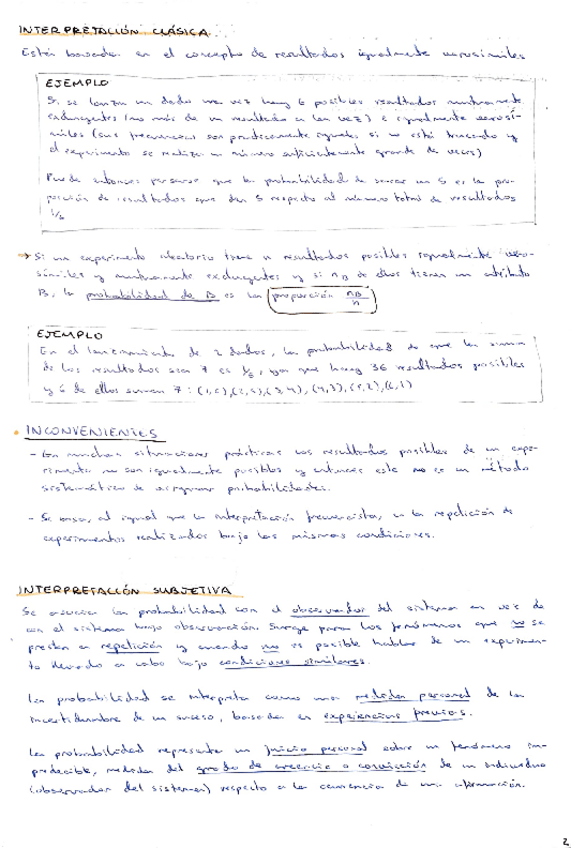 INTERPRETACIÓN CLÁSICA
Están basadas en el concepto de resultados igualmente verosímiles
EJEMPLO
Si se lanza un dado una vez hay 6 posibles resultados mutuamente
excluyentes (no más de un resultado a la vez) e igualmente verosí-
miles (sus frecuencias son prácticamente iguales si no está trucado y
el experimento se realiza un número suficientemente grande de veces)
Puede entonces pensarse que la probabilidad de sacar un 5 es la pro-
porción de resultados que dan 5 respecto al número total de resultados
1/6
→ Si un experimento aleatorio tiene n resultados posibles igualmente vero-
símiles y mutuamente excluyentes y si nB de ellos tienen un atributo
B, la probabilidad de B es la proporción nB/n
EJEMPLO
En el lanzamiento de 2 dados, la probabilidad de que la suma
de los resultados sea 7 es 1/6, ya que hay 36 resultados posibles
y 6 de ellos suman 7: (1,6),(2,5),(3,4),(4,3),(5,2),(6,1)
• INCONVENIENTES
- En muchas situaciones prácticas los resultados posibles de un expe-
rimento no son igualmente posibles y entonces este no es un método
sistemático de asignar probabilidades.
- Se basa, al igual que la interpretación frecuencista, en la repetición de
experimentos realizados bajo las mismas condiciones.
INTERPRETACIÓN SUBJETIVA
Se asocia la probabilidad con el observador del sistema en vez de
con el sistema bajo observación. Surge para los fenómenos que no se
prestan a repetición y cuando no es posible hablar de un experimen-
to llevado a cabo bajo condiciones similares.
La probabilidad se interpreta como una medida personal de la
incertidumbre de un suceso, basada en experiencias previas.
La probabilidad representa un juicio personal sobre un fenómeno im-
predecible, medida del grado de creencia o convicción de un individuo
(observador del sistema) respecto a la ocurrencia de una afirmación.
2